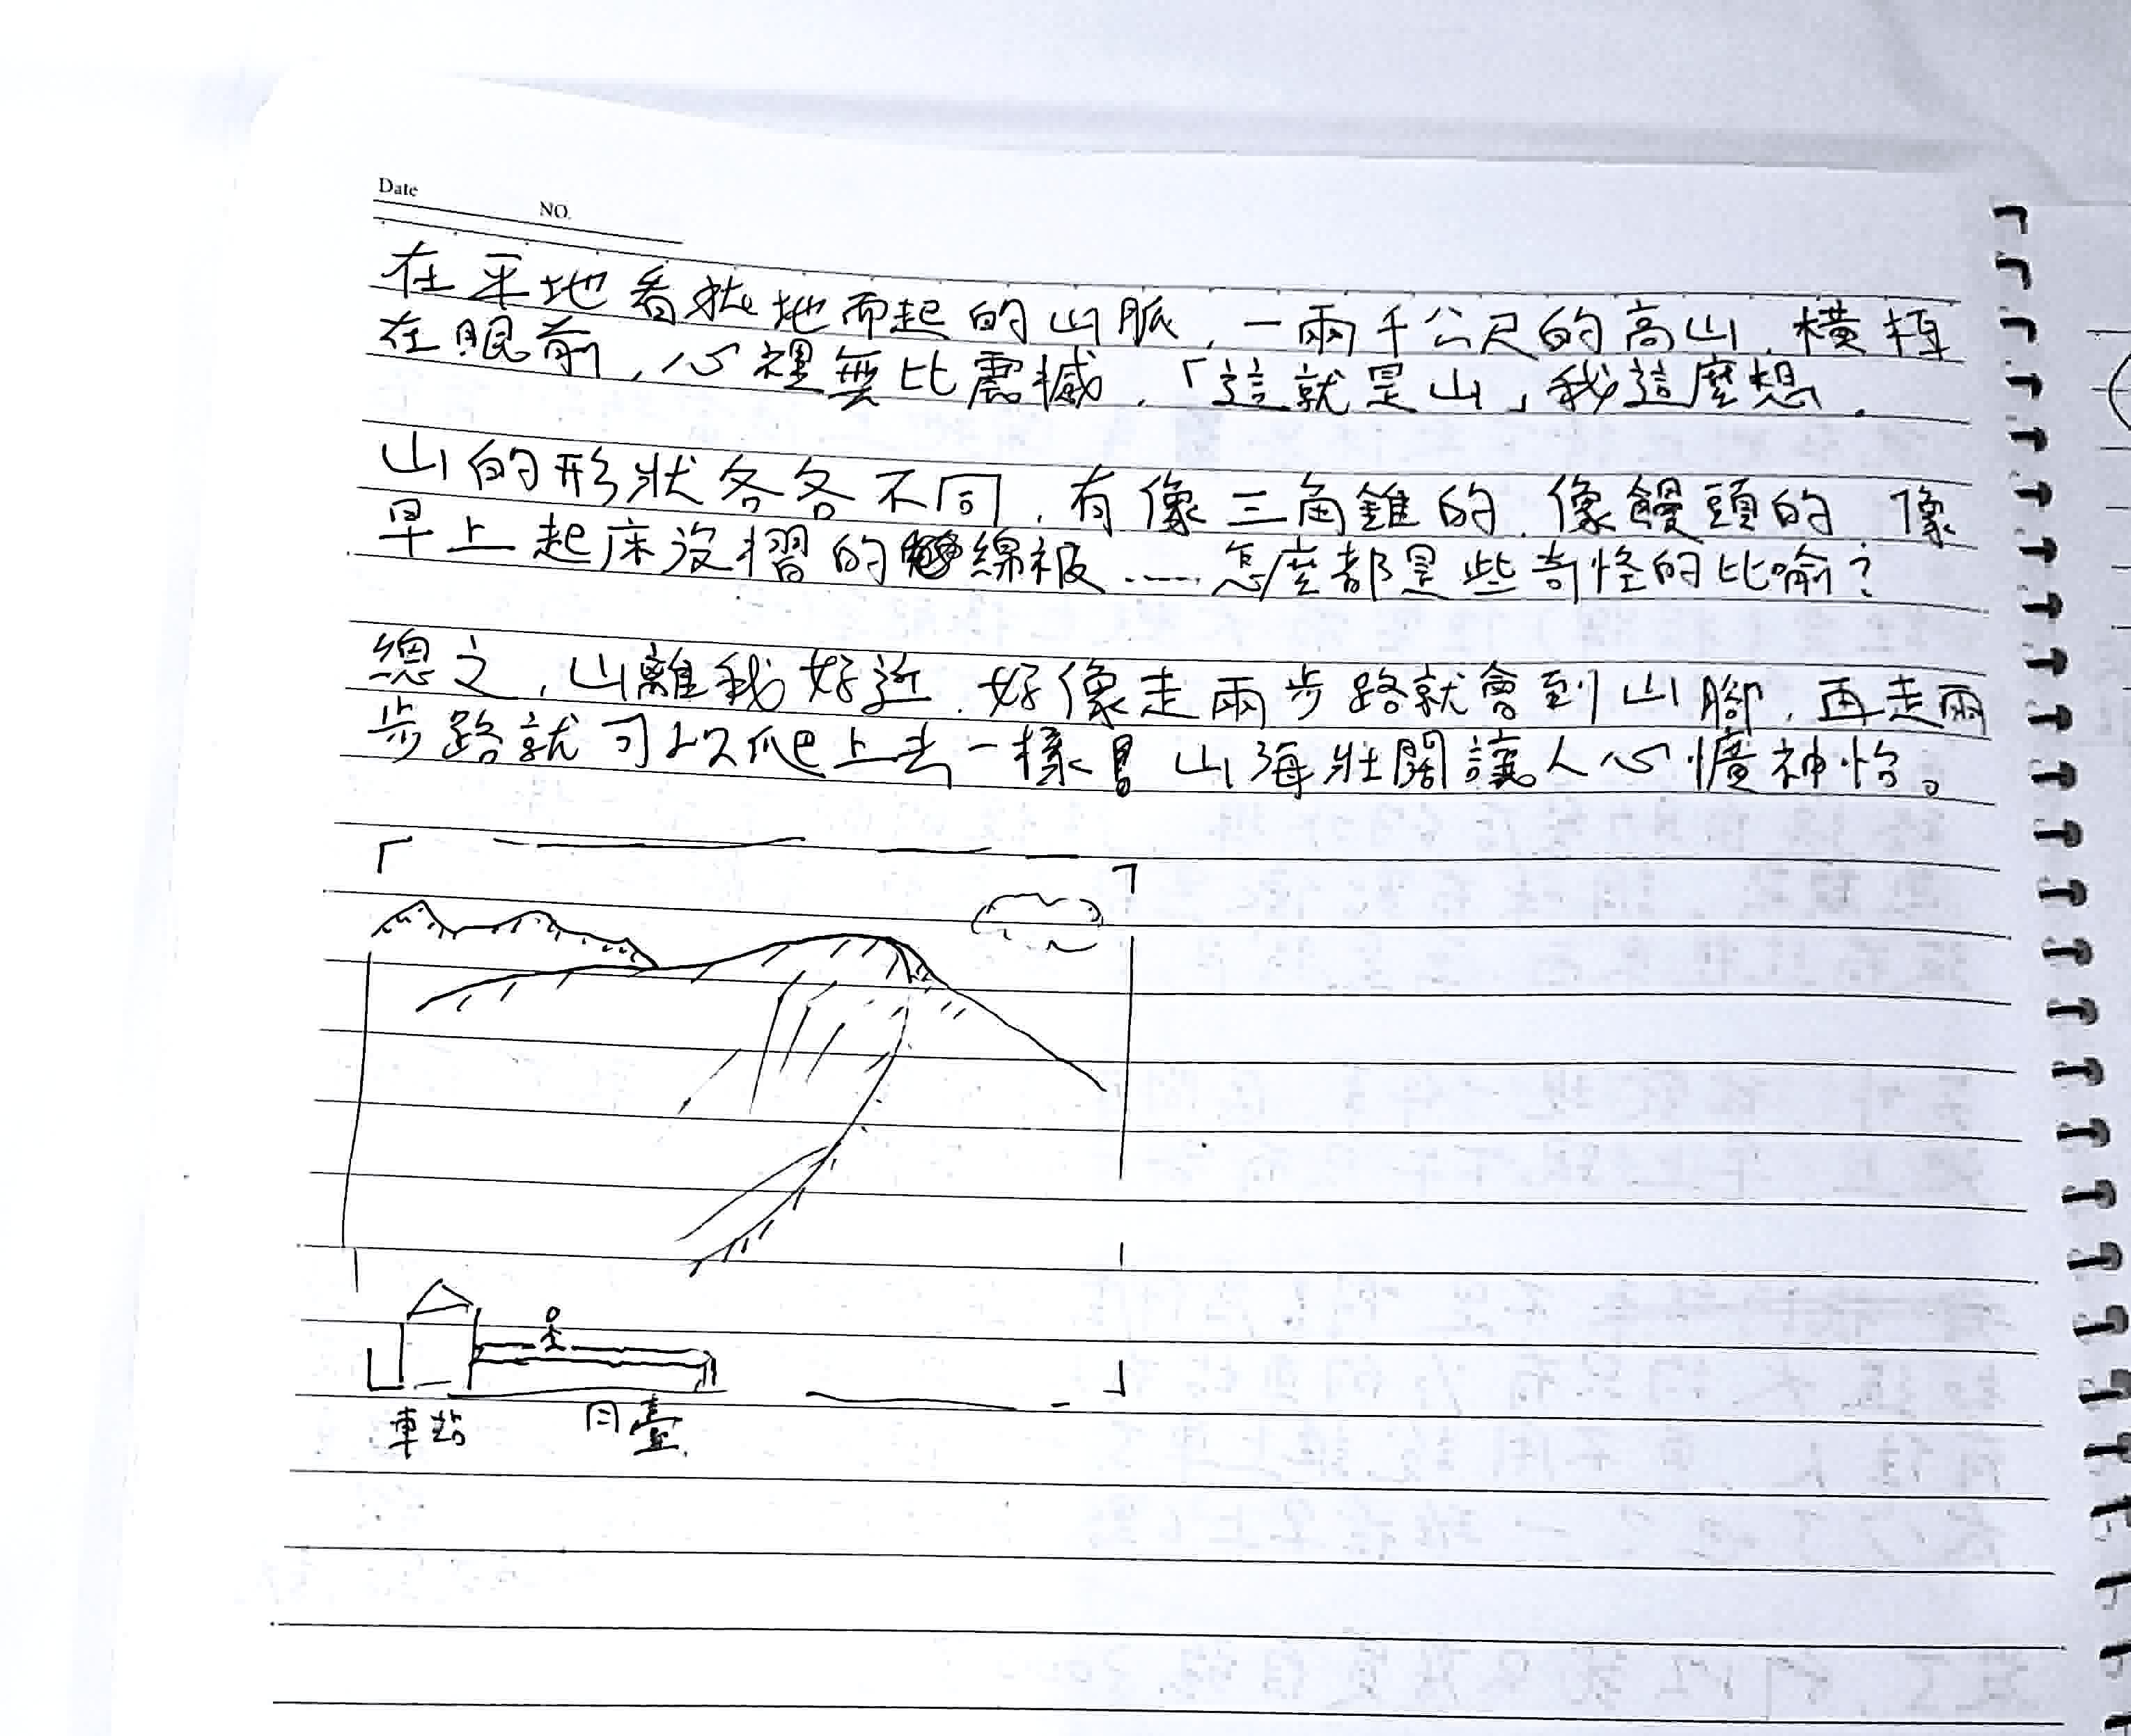 Date
NO.
在平地看拔地而起的山脈，一兩千公尺的高山，橫桓
在眼前，心裡無比震撼，「這就是山」我這麼想．
山的形狀各各不同，有像三角錐的，像饅頭的，像
早上起床沒摺的綿被……怎麼都是些奇怪的比喻？
總之，山離我好近，好像走兩步路就會到山腳，再走兩
步路就可以爬上去一樣 山海壯闊讓人心懭神怡。
車站 月臺